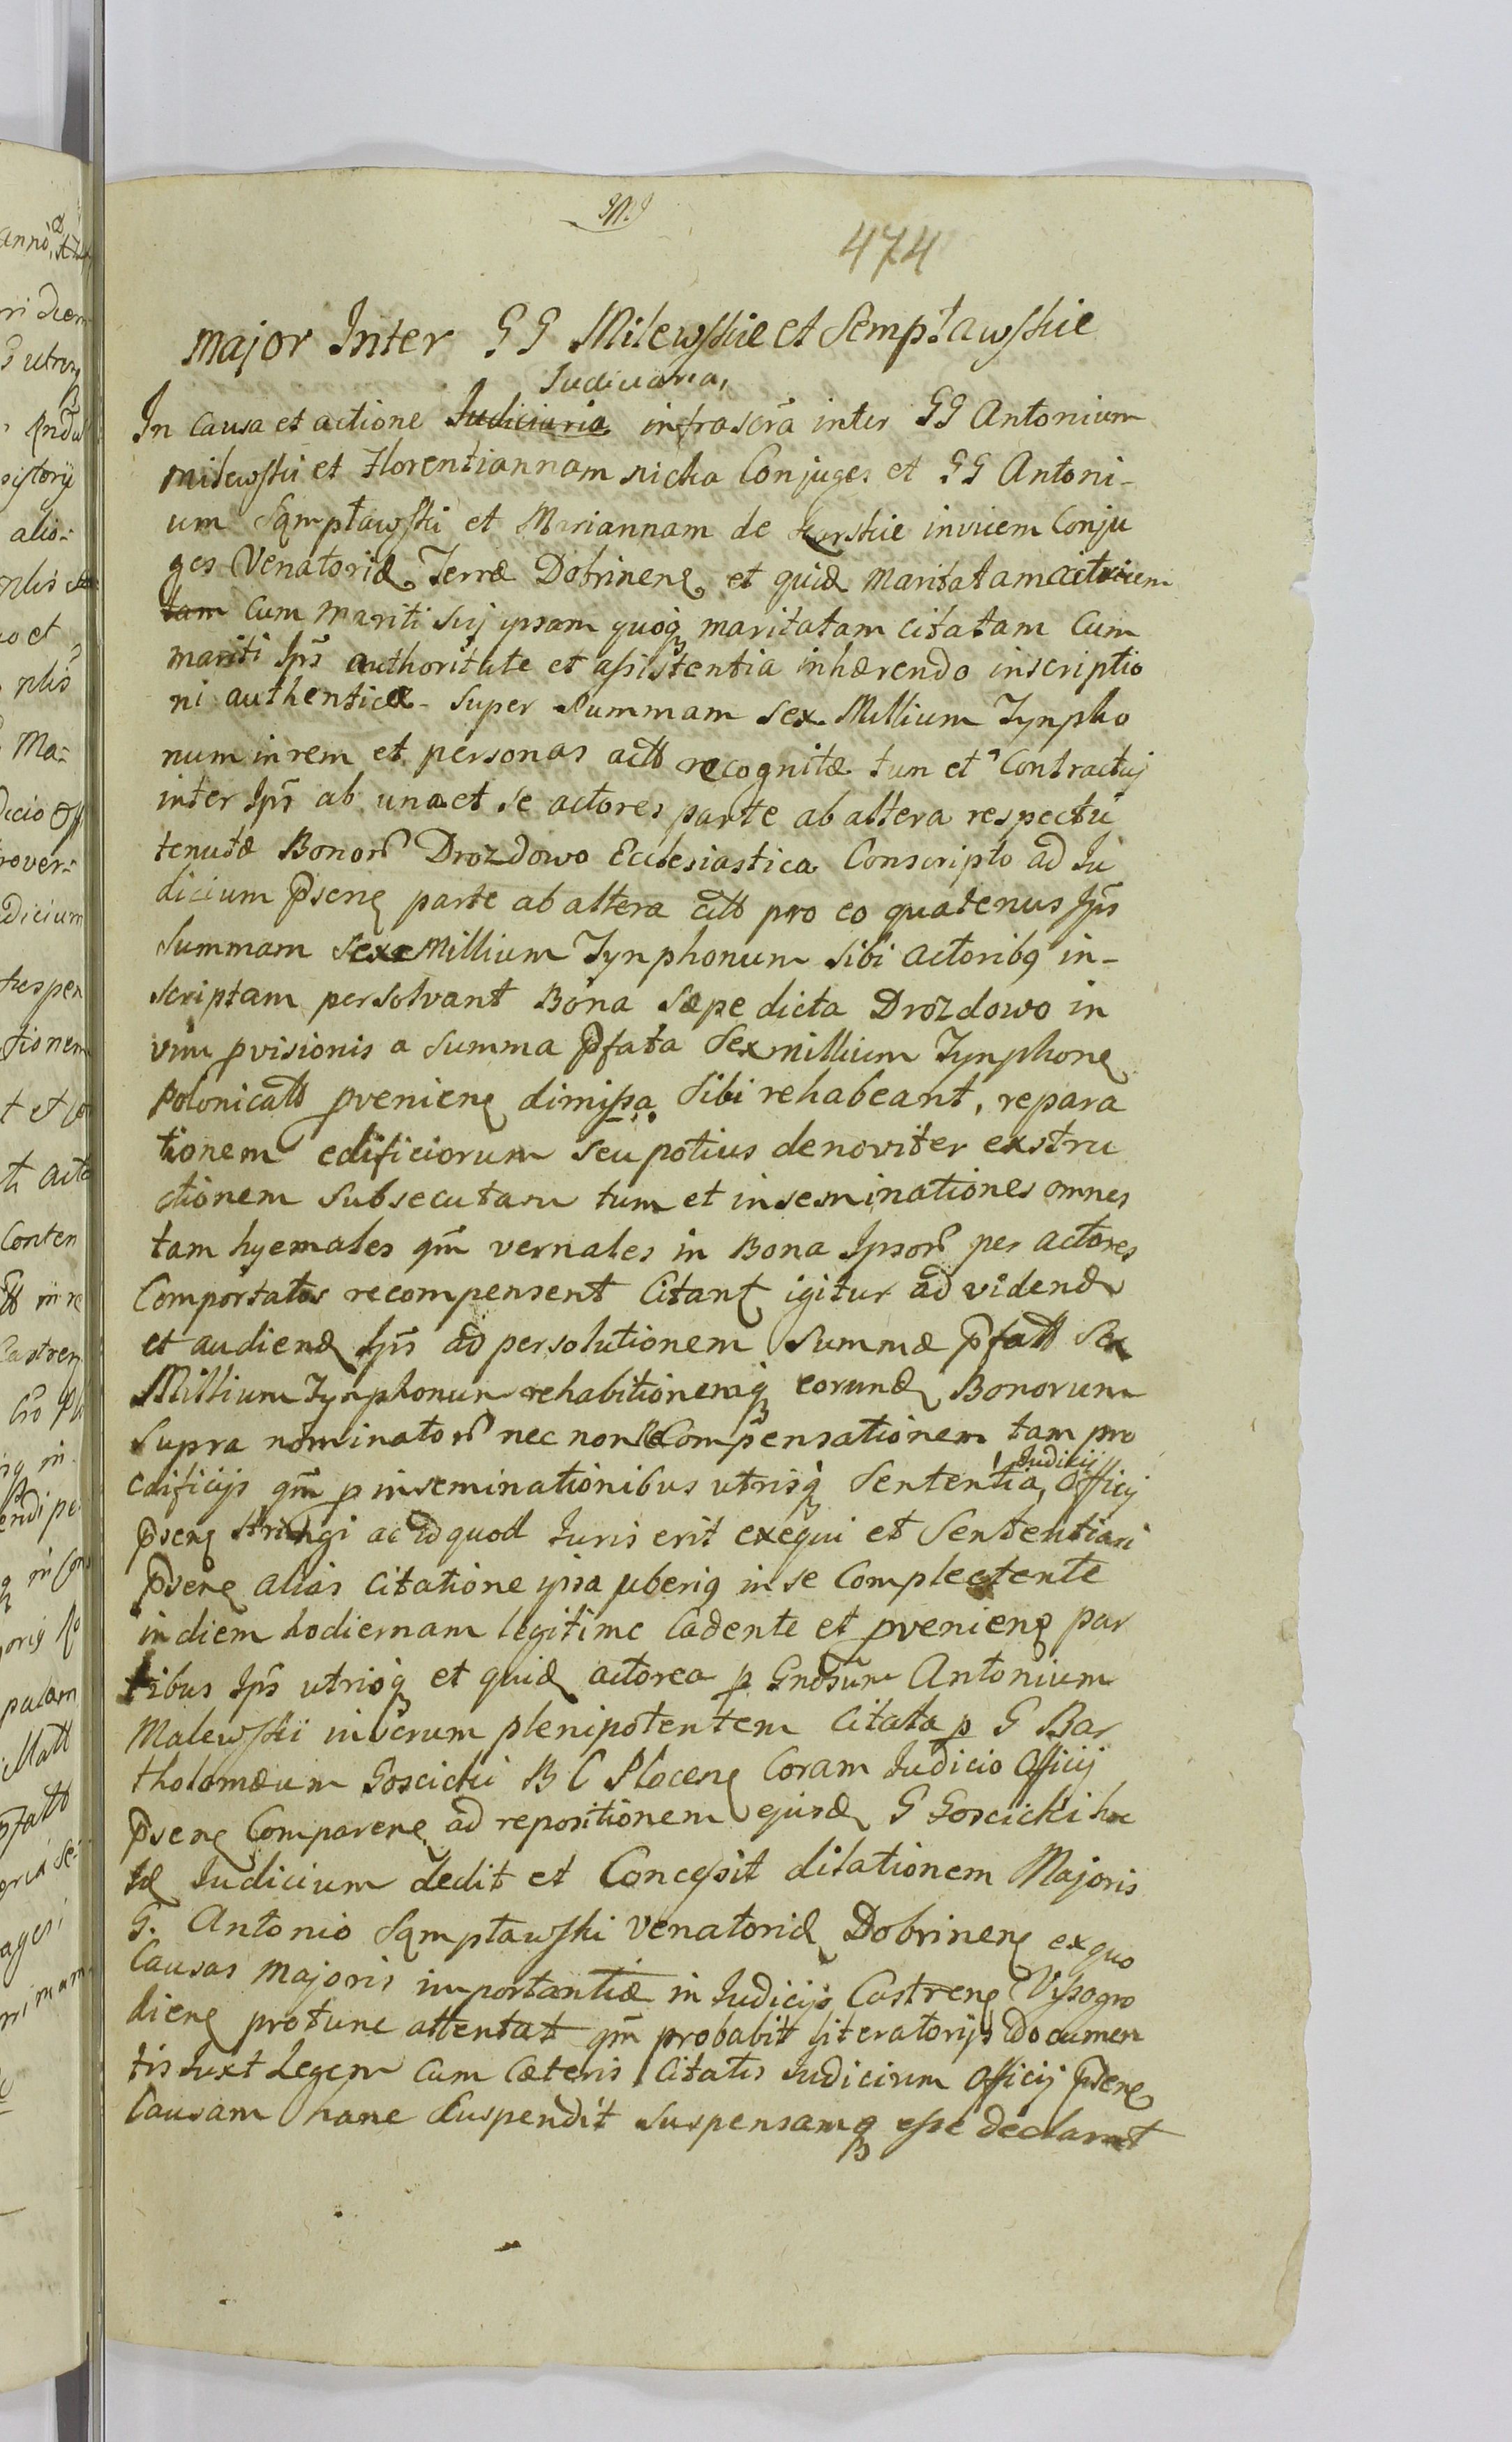 474
major Inter GG Milewskie et Sempławskie
Judiciaria,
In causa et actione Judiciaria infrascrã inter GG Antonium
Milewski et Florentiannam nicka Conjuges et GG Antoni-
um Sęmpławski et Mariannam de Karskie invicem Conju
ges Venatoridæ Terræ Dobrinenę et quidę maritatam actricem
tam cum mariti sŭj ipsam quoqꝫ maritatam citatam cum
mariti Ips̃ authoritate et assistentia inhærendo inscriptio
ni authenticæ - super summam sex Millium Tynpho
num in rem et personas actt recognitæ tun et Contractŭj
inter Ips̃ ab una et se actores parte ab altera respectŭ
tenutæ Bonor̃ Drozdowo Ecclesiastica Conscripto ad Ju
dicium p̃senę parte ab altera citt pro eo quatenus Ips̃
summam sex Millium Tynphonum sibi actoribꝯ in-
scriptam persolvant Bona sæpe dicta Drozdowo in
vim ꝓvisionis a summa p̃fata sex millium Tynphonę
Polonicatt ꝓvenienę dimissa sibi rehabeant, repara
tionem edificiorum seu potius denoviter exstru
ctionem subsecutam tum et inseminationes omnes
tam hyemales qm̃ vernales in Bona Ipsor̃ per actores
Comportatas recompensent Citantę igitur ad videndę
et audiendę Ips̃ ad persolutionem summæ p̃fatt sex
Millium Tynphonum rehabitionemqꝫ eorundę Bonorum
supra nominator̃ nec non reCompensationem tam pro
Judicij
edificijs qm̃ ꝓ inseminationibus utrisqꝫ sententia, officij
p̃senę stringi ac id quod Juris erit exequi et sententiari
p̃senę alias citatione ipsa uberiꝯ in se Complectente
in diem hodiernam legitime cadente et ꝓvenienę par
tibus Ips̃ utrisqꝫ et quidę actorea ꝑ Gnosum Antonium
Malewski in verum plenipotentem citata ꝑ G Bar
tholomæum Goscicki B C Plocenę Coram Judicio officij
p̃senę Comparenę ad repositionem ejusdę G Goscicki hæ
tę Judicium dedit et Concessit dilationem Majoris
G. Antonio Sęmpławski venatoridę Dobrinenę ex quo
Causas majoris importantiæ in Judicijs Castrenę Vyssogro
dienę pro tunc attentat qm̃ probabit literatorijs documen
tis Juxt Legem cum cæteris citatis Judicium officij p̃senę
Causam hanc suspendit suspensamqꝫ esse declarat